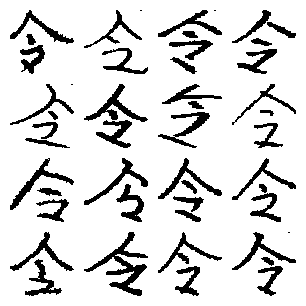 令令令令
令令令令
令令令令
令令令令